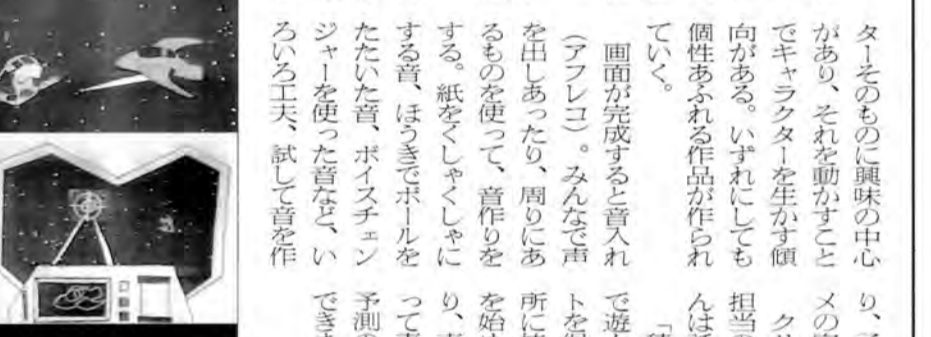 ターそのものに興味の中心
があり、それを動かすこと
でキャラクターを生かす傾
向がある。いずれにしても
個性あふれる作品が作られ
ていく。
画面が完成すると音入れ
(アフレコ)。みんなで声
を出しあったり、周りにあ
るものを使って、音作りを
する。紙をくしゃくしゃに
する音、ほうきでボールを
たたいた音、ボイスチェン
ジャーを使った音など、い
ろいろ工夫、試して音を作
り、
メの
ク
担当の
んは
で遊
トを
所に
を始め
り、
って
予測の
でき